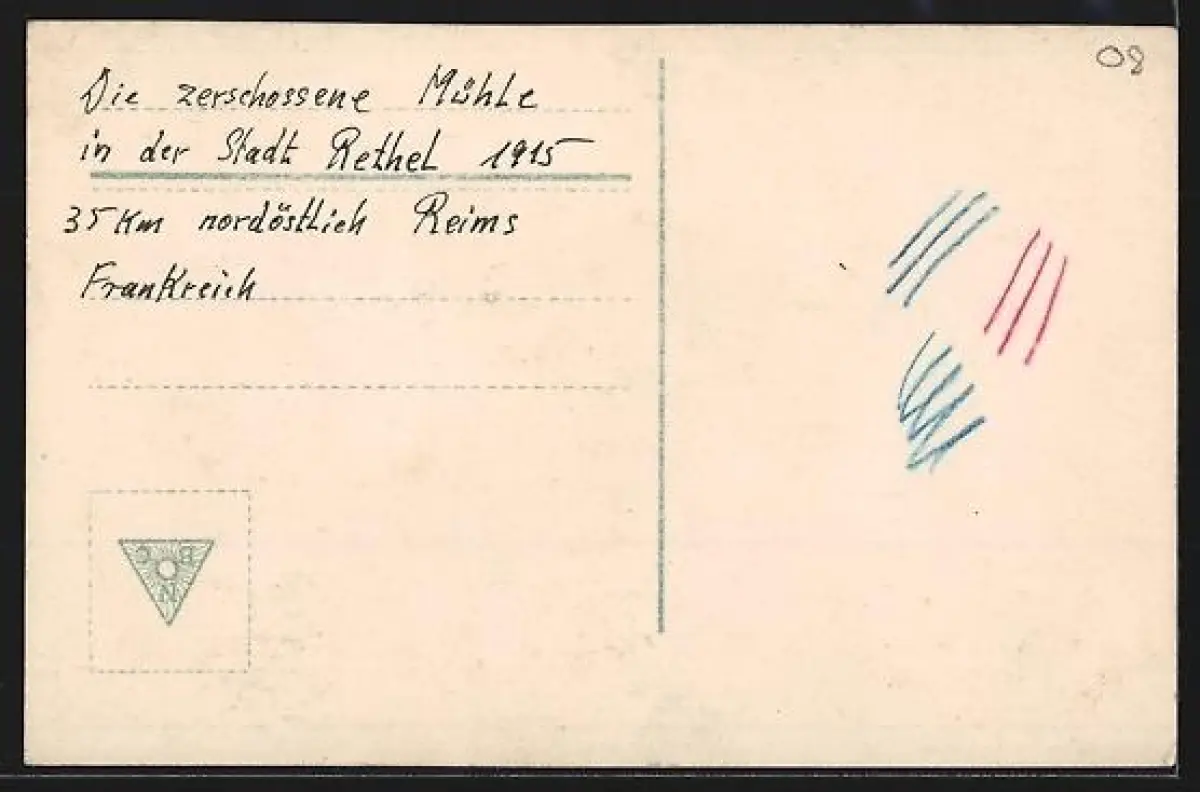 08
Die zerschossene Mühle
in der Stadt Rethel 1915
35 Km nordöstlich Reims
Frankreich
N B C